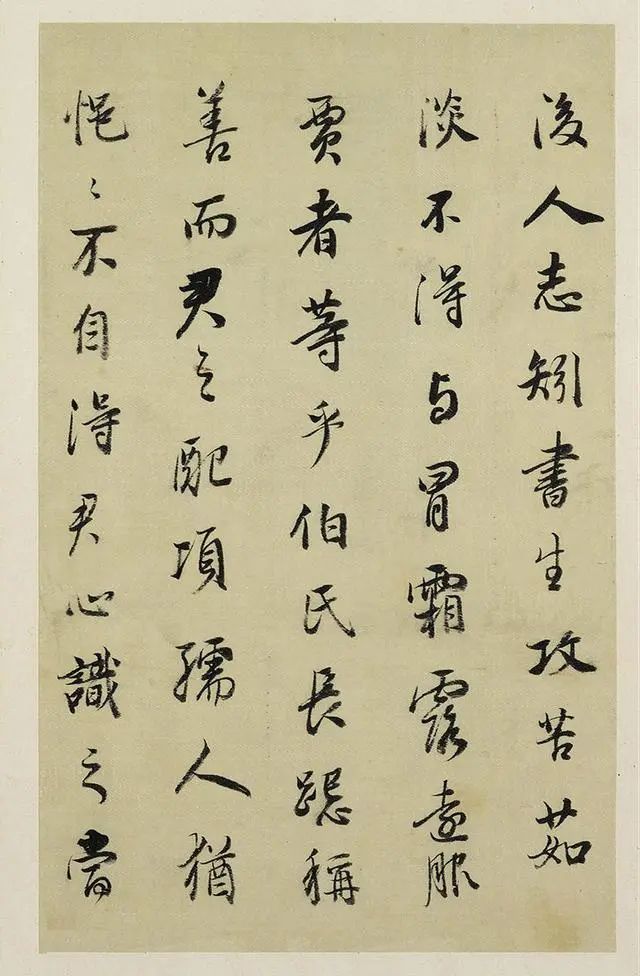 後人志矧書生攻苦茹
淡不得与冒霜露遠服
賈者等乎伯氏長跽稱
善而君之配項孺人猶
悒〻不自得君心識之嘗